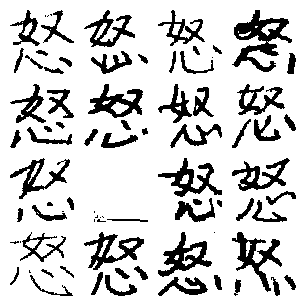 怒怒怒怒
怒怒怒怒
怒怒怒
怒怒怒怒